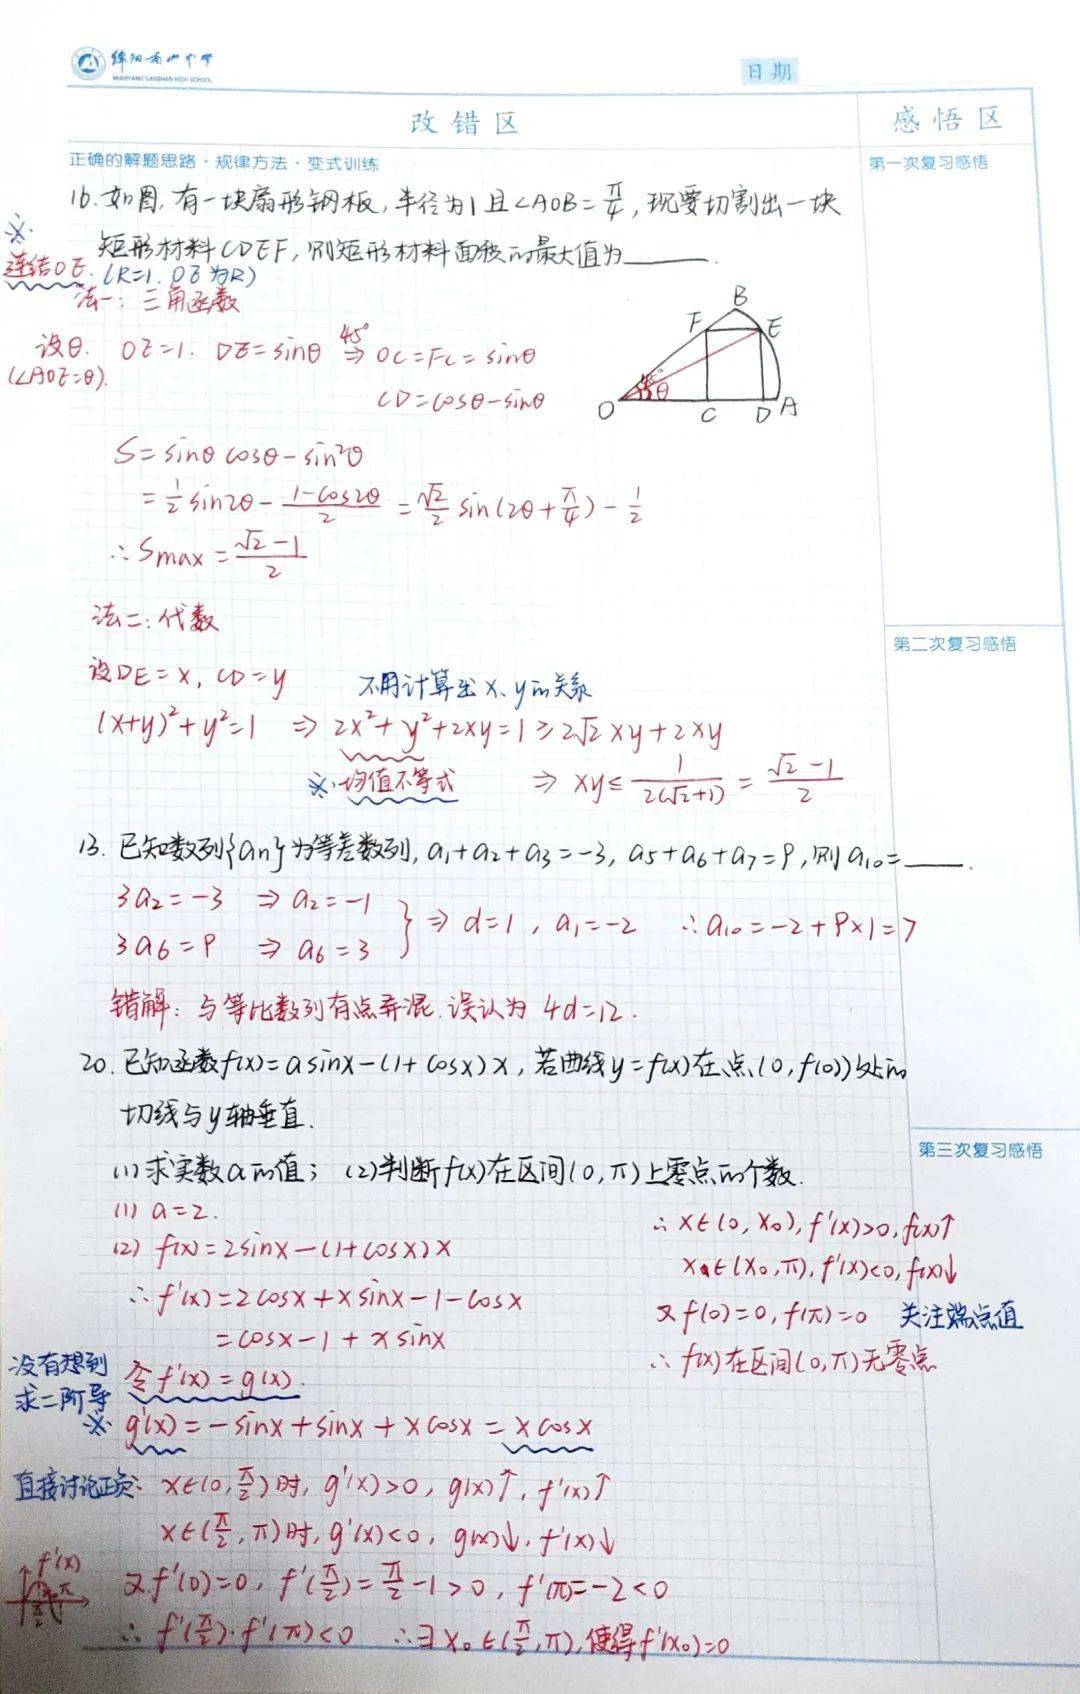 绵阳南山中学
MIANYANG NANSHAN HIGH SCHOOL
日期
改错区
感悟区
正确的解题思路·规律方法·变式训练
第一次复习感悟
16.如图,有一块扇形钢板,半径为1且∠AOB=π/4,现要切割出一块
矩形材料CDEF,则矩形材料面积的最大值为____.
※
连结OE.(R=1.OE为R)
法一:三角函数
设θ. OE=1. DE=sinθ 45°⇒ OC=FC=sinθ
(∠AOE=θ).
CD=cosθ-sinθ
B
F E
45° θ
O C D A
S=sinθcosθ-sin²θ
=1/2 sin2θ-(1-cos2θ)/2=√2/2 sin(2θ+π/4)-1/2
∴Smax=(√2-1)/2
法二:代数
第二次复习感悟
设DE=x,CD=y 不用计算出x、y的关系
(x+y)²+y²=1 ⇒ 2x²+y²+2xy=1≥2√2xy+2xy
※.均值不等式 ⇒ xy≤1/(2(√2+1))=(√2-1)/2
13.已知数列{an}为等差数列,a₁+a₂+a₃=-3,a₅+a₆+a₇=9,则a₁₀=____.
3a₂=-3 ⇒ a₂=-1
} ⇒ d=1,a₁=-2 ∴a₁₀=-2+9×1=7
3a₆=9 ⇒ a₆=3
错解:与等比数列有点弄混.误认为 4d=12.
20.已知函数f(x)=asinx-(1+cosx)x,若曲线y=f(x)在点(0,f(0))处的
切线与y轴垂直.
第三次复习感悟
(1)求实数a的值;(2)判断f(x)在区间(0,π)上零点的个数.
(1) a=2.
(2) f(x)=2sinx-(1+cosx)x
∴f'(x)=2cosx+xsinx-1-cosx
=cosx-1+xsinx
没有想到
求二阶导
令f'(x)=g(x).
※ g'(x)=-sinx+sinx+xcosx=xcosx
直接讨论正负: x∈(0,π/2)时,g'(x)>0,g(x)↑,f'(x)↑
x∈(π/2,π)时,g'(x)<0,g(x)↓,f'(x)↓
f'(x)
π/2 π
又f'(0)=0,f'(π/2)=π/2-1>0,f'(π)=-2<0
∴f'(π/2)·f'(π)<0 ∴∃x₀∈(π/2,π),使得f'(x₀)=0
∴x∈(0,x₀),f'(x)>0,f(x)↑
x∈(x₀,π),f'(x)<0,f(x)↓
又f(0)=0,f(π)=0 关注端点值
∴f(x)在区间(0,π)无零点